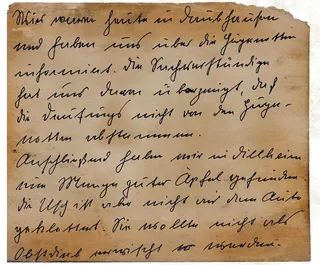 Wir waren heute in Daubhausen
und haben uns über die Hugenotten
informiert. Die Sachverständige
hat uns davon überzeugt, daß
die nicht von den Huge-
notten abstammen.
Anschließend haben wir in Dillheim
eine Menge guter Äpfel gefunden.
die Usch ist aber nicht auf dem Auto
geklettert. Sie wollte nicht als
Obstdieb erwischt werden.